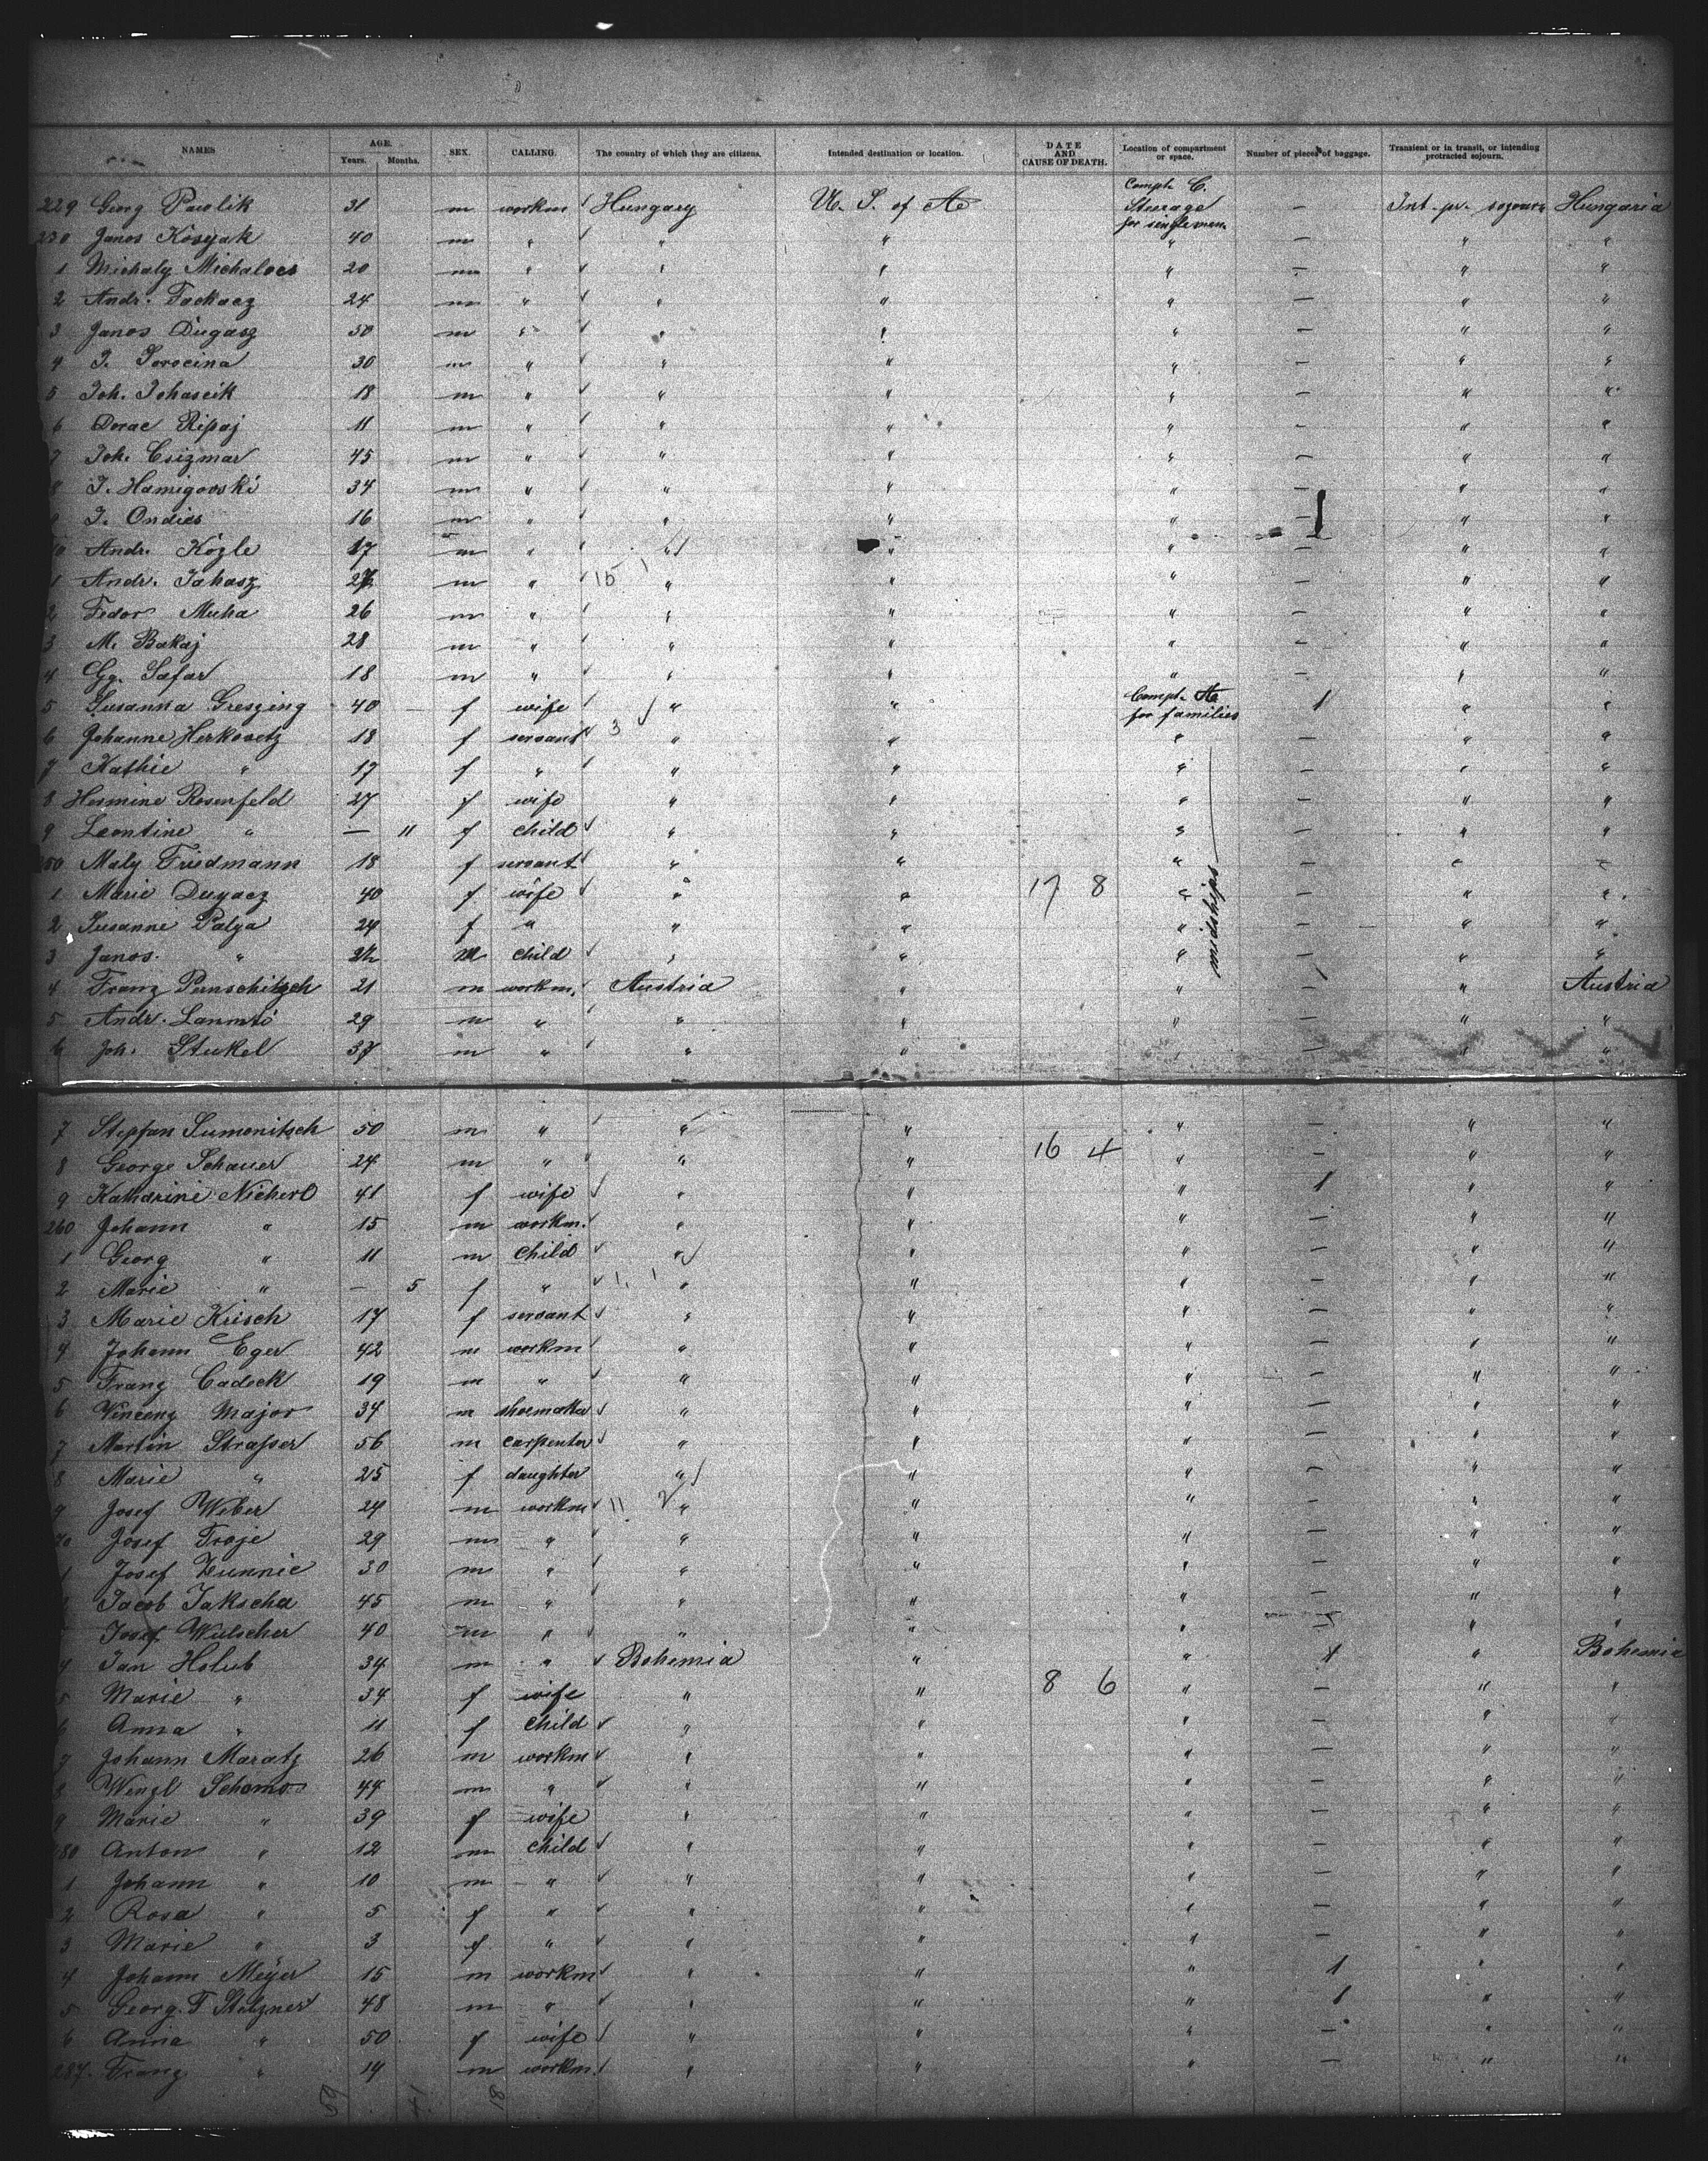 NAMES AGE. Years. Months. SEX. CALLING. The country of which they are citizens. Intended destination or location. DATE AND CAUSE OF DEATH. Location of compartment or space. Number of pieces of baggage. Transient or in transit, or intending protracted sojourn.
229 Georg Pavlik 31 m workm Hungary U. S. of A Compt. C. Steerage for single men — Int. pr. sojourn Hungaria
230 Janos Kosyak 40 m " " " " — " "
1 Michaly Michalocs 20 m " " " " — " "
2 Andr. Tackacz 24 m " " " " — " "
3 Janos Dugasz 50 m " " " " — " "
4 J. Sorocina 30 m " " " " — " "
5 Joh. Johascik 18 m " " " " — " "
6 Dorae Ripaj 11 m " " " " — " "
7 Joh. Csizmar 45 m " " " " — " "
8 J. Hamigovski 34 m " " " " — " "
J. Ondics 16 m " " " " — " "
Andr. Közle 17 m " " " " — " "
1 Andr. Juhasz m " 15 1 " " " — " "
2 Fedor Muha 26 m " " " " — " "
3 M. Bakaj 28 m " " " " — " "
4 Gg. Safar 18 m " " " " — " "
5 Susanna Greszing 40 — f wife " " Compt. A for families 1 " "
6 Johanne Herkovetz 18 f servant 3 " " " — " "
7 Kathie " 17 f " " " " — " "
8 Hermine Rosenfeld 27 f wife " " " — " "
9 Leontine " — 11 f child " " " — " "
250 Maly Friedmann 18 f servant " " " — " "
1 Marie Dugacz 40 f wife " " 17 8 " — " "
2 Susanne Palya 24 f " " " " — " "
3 Janos " m child " " " — " "
midships
4 Franz Pernschitzsch 21 m workm. Austria " " 1 " Austria
5 Andr. 29 m " " " " — " "
6 Joh. Stukel 37 m " " " " — " "
7 Stepfan Sumonitsch 50 m " " " " — " "
8 George Schauer 24 m " " " 16 4 " — " "
9 Katharine Nicherl 41 f wife " " " 1 " "
260 Johann " 15 m workm. " " " — " "
1 Georg " 11 m child " " " — " "
2 Marie " — 5 f " 1. 1 " " " — " "
3 Marie Krisch 17 f servant " " " — " "
4 Johann Eger 42 m workm " " " — " "
5 Franz Cadeck 19 m " " " " — " "
6 Vincenz Major 34 m shoemaker " " " — " "
7 Martin Strasser 56 m carpenter " " " — " "
8 Marie " 25 f daughter " " " — " "
9 Josef Weber 24 m workm 11 2 " " " — " "
70 Josef Troje 29 m " " " " — " "
1 Josef Zunnic 30 m " " " " — " "
Jacob Jakscha 45 m " " " " — " "
Josef Wulscher 40 m " " " " — " "
4 Jan Holub 34 m " Bohemia " " 1 " Bohemia
5 Marie " 34 f wife " " 8 6 " — " "
6 Anna " 11 f child " " " — " "
7 Johann Maratz 26 m workm " " " — " "
8 Wenzl Schomo 44 m " " " " — " "
9 Marie " 39 f wife " " " — " "
280 Anton " 12 m child " " " — " "
1 Johann " 10 m " " " " — " "
2 Rosa " 5 f " " " " — " "
3 Marie " 3 f " " " " — " "
4 Johann Meÿer 15 m workm " " " 1 " "
5 Georg. F Stelzner 48 m " " " " 1 " "
6 Anna " 50 f wife " " " — " "
287. Franz " 14 m workm. " " " — " "